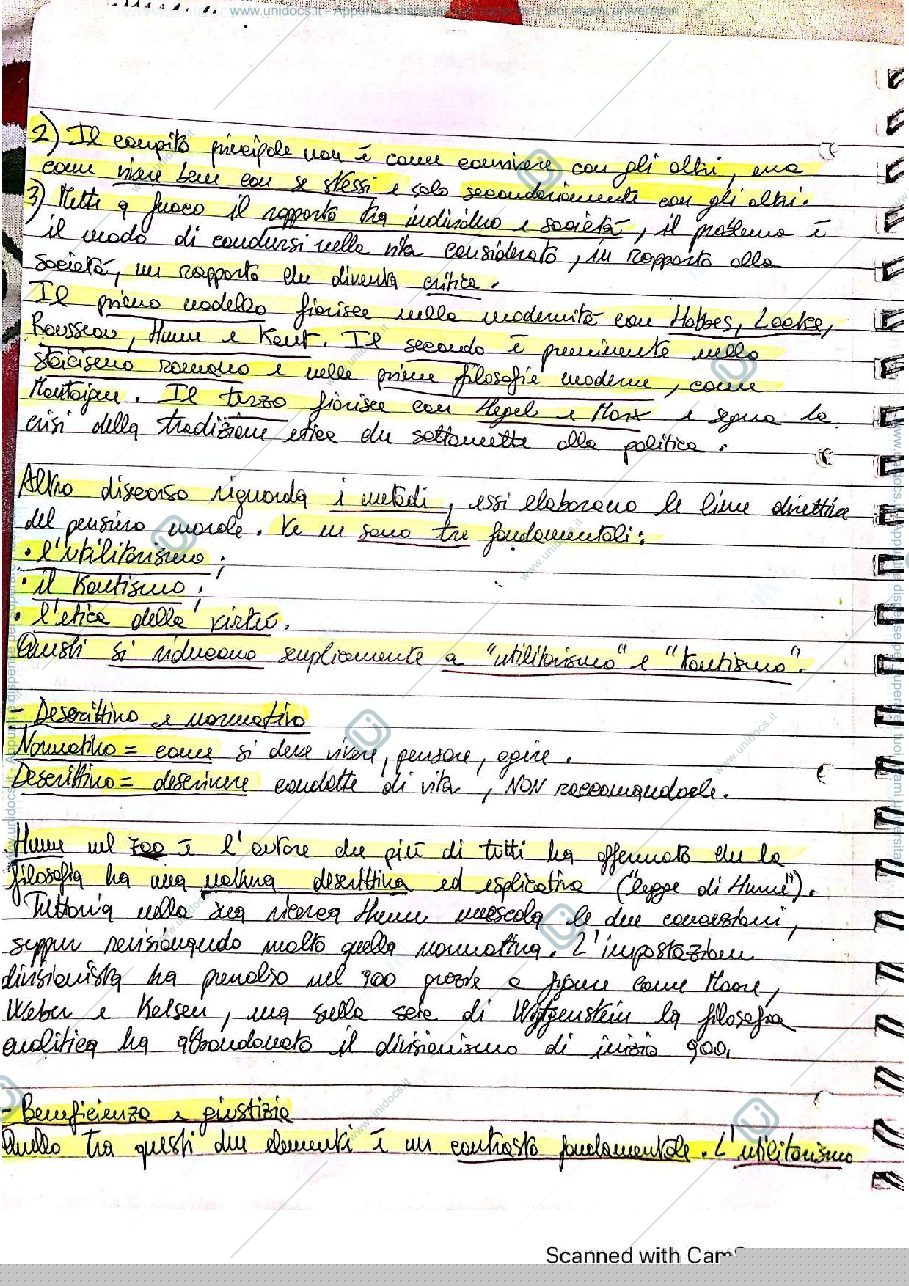 2) Il compito principale non è come convivere con gli altri, ma
come vivere bene con se stessi e solo secondariamente con gli altri.
3) Mette a fuoco il rapporto tra individuo e società, il problema è
il modo di condursi nella vita considerato, in rapporto alla
società, un rapporto che diventa critica.
Il primo modello fiorisce nella modernità con Hobbes, Locke,
Rousseau, Hume e Kant. Il secondo è preminente nello
stoicismo romano e nelle prime filosofie moderne, come
Montaigne. Il terzo fiorisce con Hegel e Marx e segna la
crisi della tradizione etica che sottomette alla politica.
Altro discorso riguarda i metodi, essi elaborano le linee direttive
del pensiero morale. Ve ne sono tre fondamentali:
• l'utilitarismo;
• il Kantismo;
• l'etica della virtù.
Questi si riducono semplicemente a "utilitarismo" e "Kantismo".
- Descrittivo e normativo
Normativo = come si deve vivere, pensare, agire.
Descrittivo = descrivere condotte di vita, NON raccomandarle.
Hume nel 700 è l'autore che più di tutti ha affermato che la
filosofia ha una natura descrittiva ed esplicativa ("legge di Hume").
Tuttavia nella sua ricerca Hume mescola le due concezioni,
seppur revisionando molto quella normativa. L'impostazione
divisionista ha prevalso nel 900 grazie a figure come Moore,
Weber e Kelsen, ma sulla scia di Wittgenstein la filosofia
analitica ha abbandonato il divisionismo di inizio 900.
- Beneficienza e giustizia
Quello tra questi due elementi è un contrasto fondamentale. L'utilitarismo
Scanned with Cam